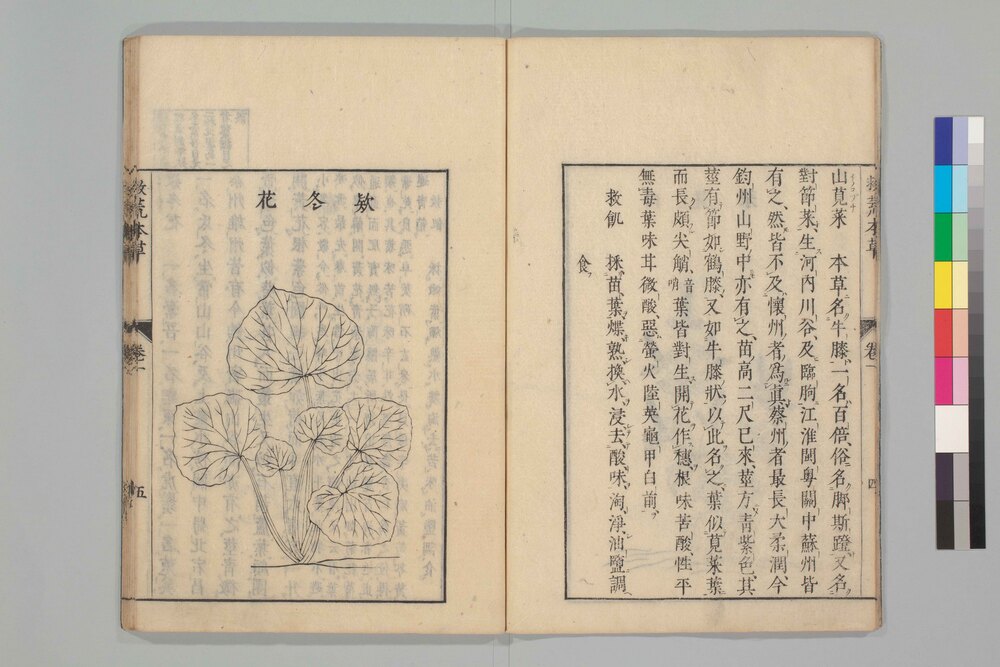 山莧菜 本草名牛膝一名百倍俗名脚斯蹬又名
對節菜生河內川谷及臨朐江淮閩粵關中蘇州皆
有之然皆不及懷州者為真蔡州者最長大柔潤今
鈞州山野中亦有之苗高二尺已來莖方青紫色其
莖有節如鶴膝又如牛膝狀以此名之葉似莧菜葉
而長頗尖艄音哨葉皆對生開花作穗根味苦酸性平
無毒葉味甘微酸惡螢火陸英龜甲白前
救飢 採苗葉煠熟換水浸去酸味淘淨油鹽調
食
救荒本草
卷一
四
款冬花
救荒本草
卷一
五